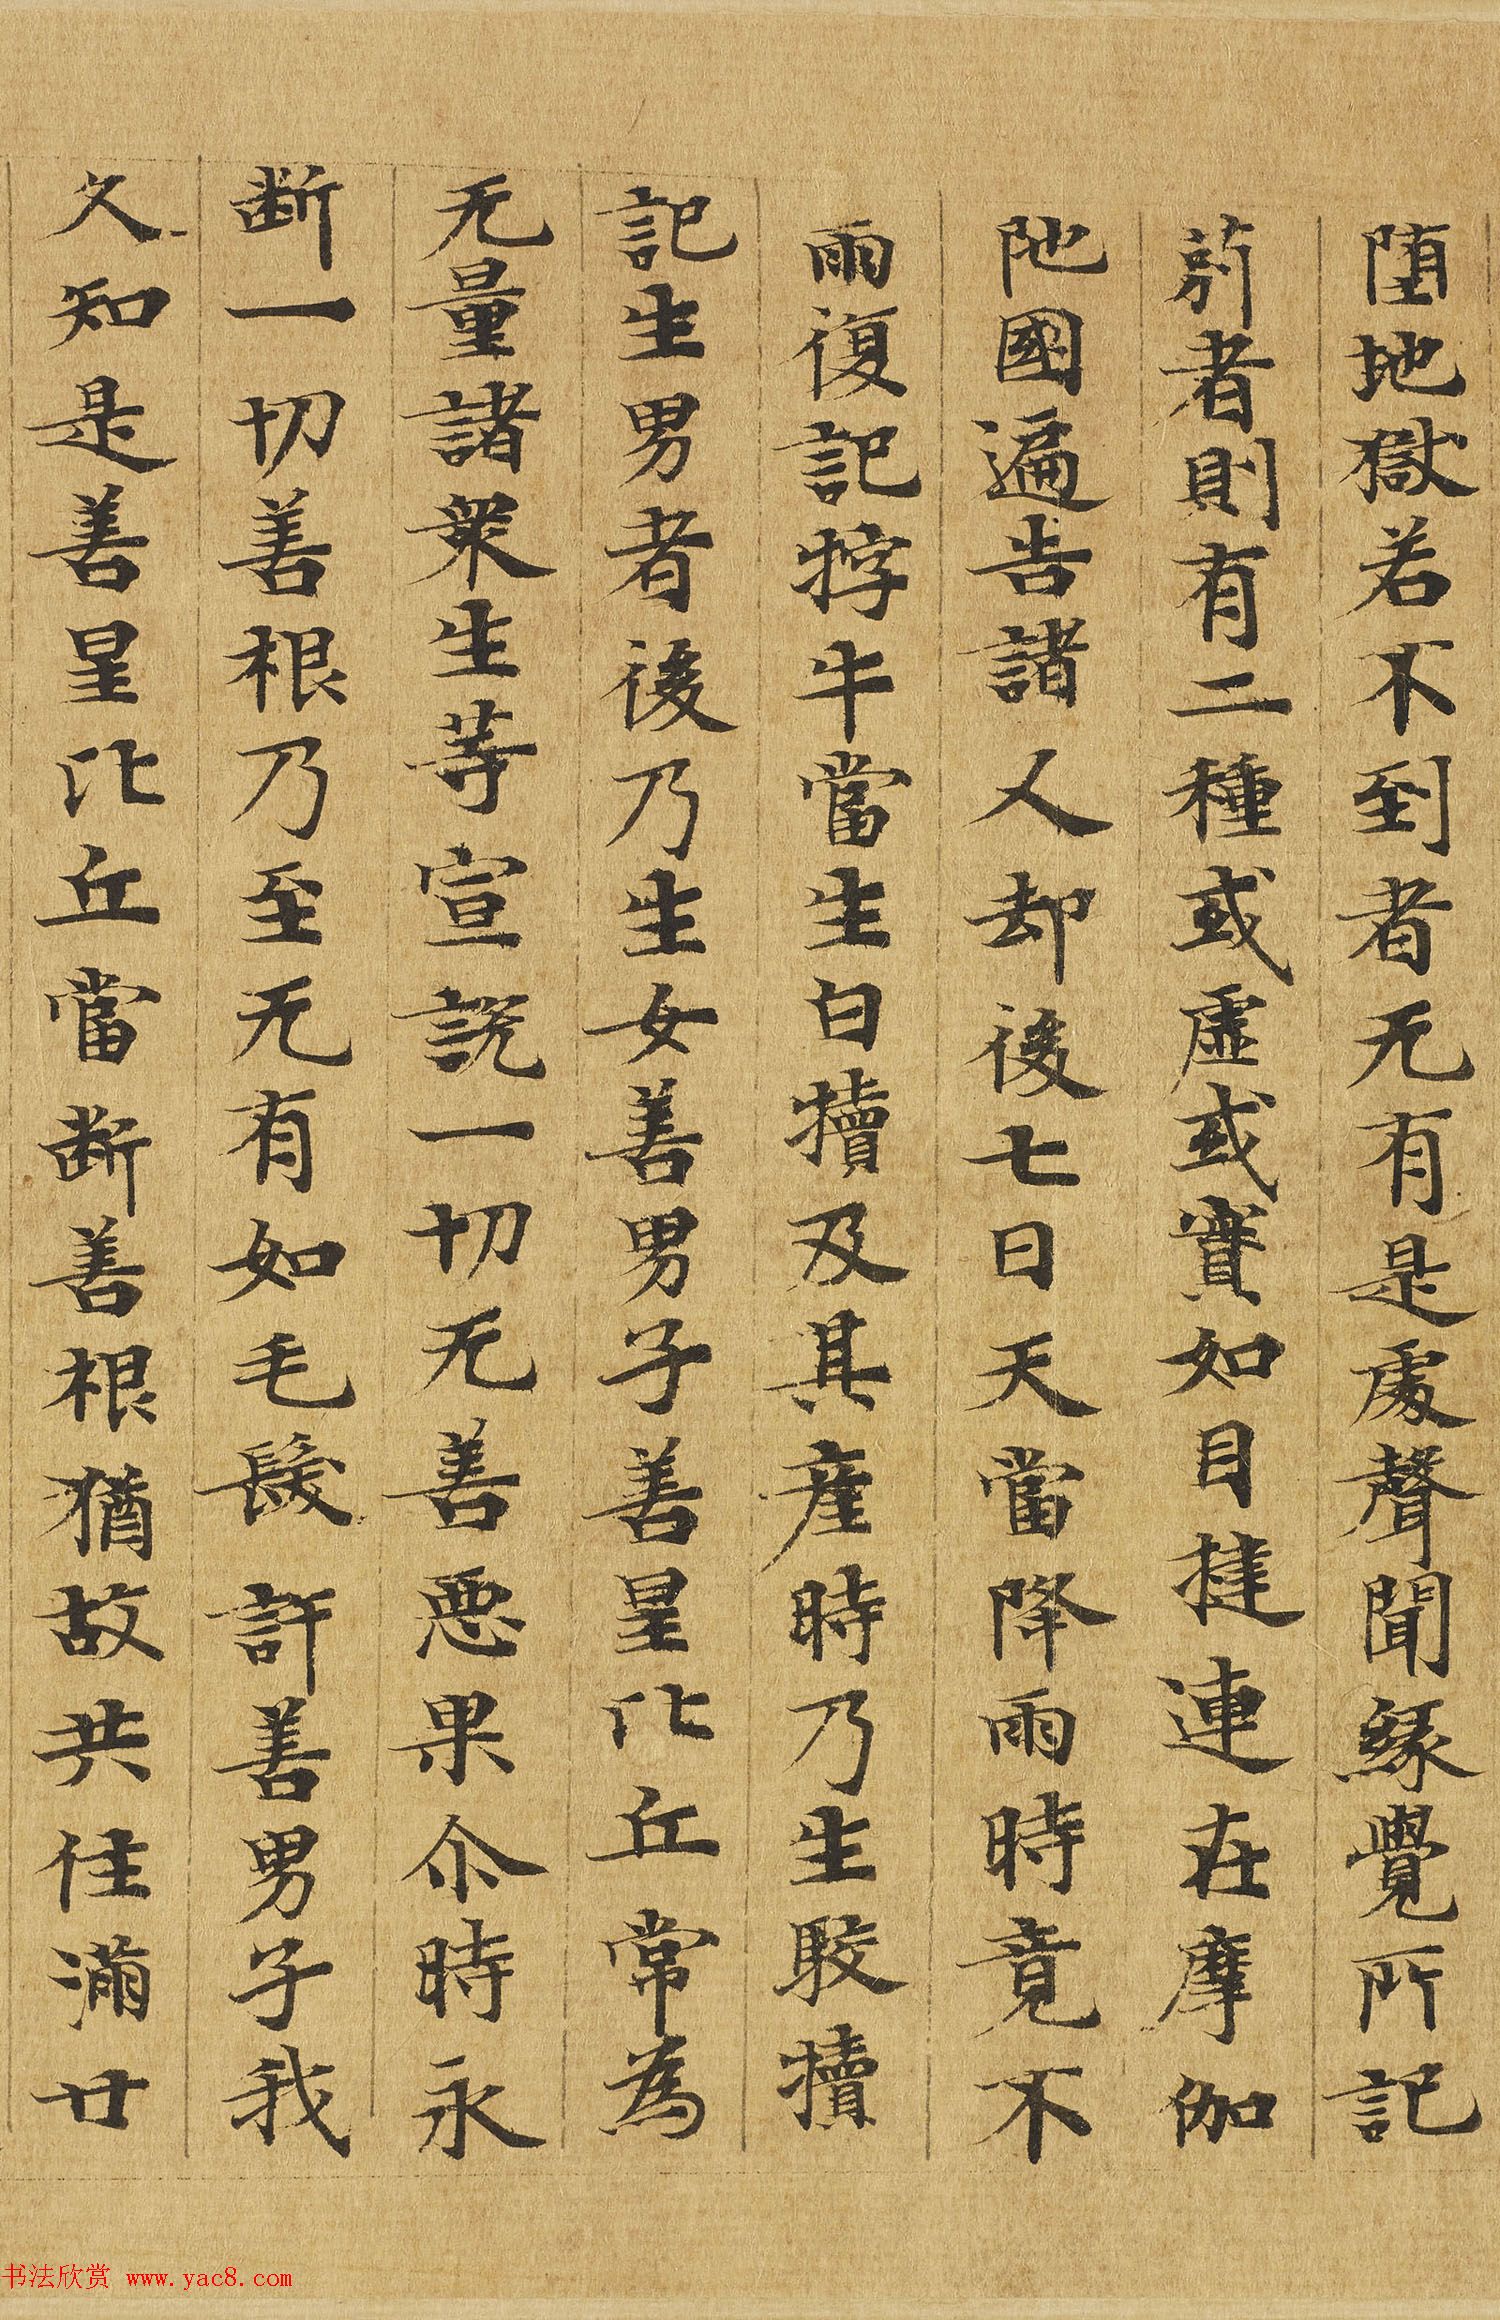 堕地獄若不到者无有是處聲聞緣覺所記
莂者則有二種或虛或實如目揵連在摩伽
陁國遍告諸人却後七日天當降雨時竟不
雨復記牸牛當生白犢及其產時乃生駮犢
記生男者後乃生女善男子善星比丘常為
无量諸衆生等宣説一切无善惡果尒時永
断一切善根乃至无有如毛髮許善男子我
久知是善星比丘當断善根猶故共住滿廿
书法欣赏 www.yac8.com